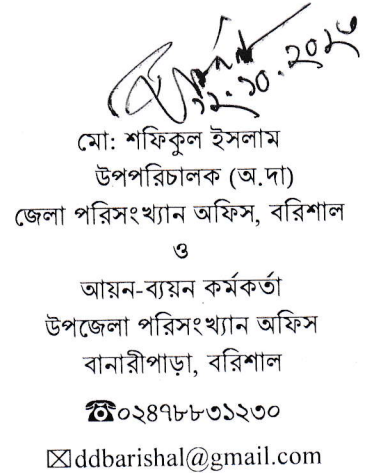 ১২.১০.২০২০
মো: শফিকুল ইসলাম
উপপরিচালক (অ.দা)
জেলা পরিসংখ্যান অফিস, বরিশাল
ও
আয়ন-ব্যয়ন কর্মকর্তা
উপজেলা পরিসংখ্যান অফিস
বানারীপাড়া, বরিশাল
☎০২৪৭৮৮৩১২৩০
✉ddbarishal@gmail.com